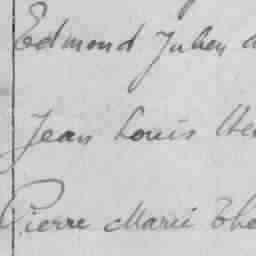 Edmond Julien
Jean Louis
Pierre Marie